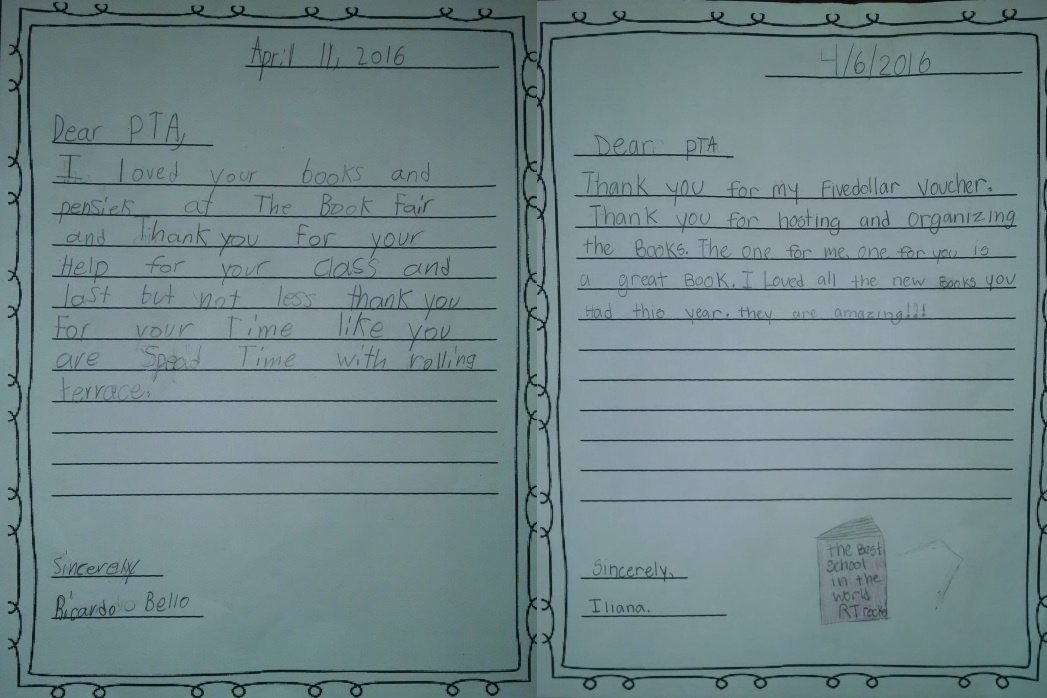 April 11, 2016
Dear PTA,
I loved your books and
pensiek at The Book Fair
and Thank you For your
Help for your class and
last but not less thank you
For your Time like you
are Spead Time with rolling
terrace.
Sincerely
Ricardo Bello
4/6/2016
Dear PTA
Thank you for my Fivedollar Voucher.
Thank you for hosting and organizing
the Books. The one for me, one for you is
a great Book. I Loved all the new Books you
Had this year. they are amazing!!!
Sincerely,
Iliana.
the Best
School
in the
world
RT rocks